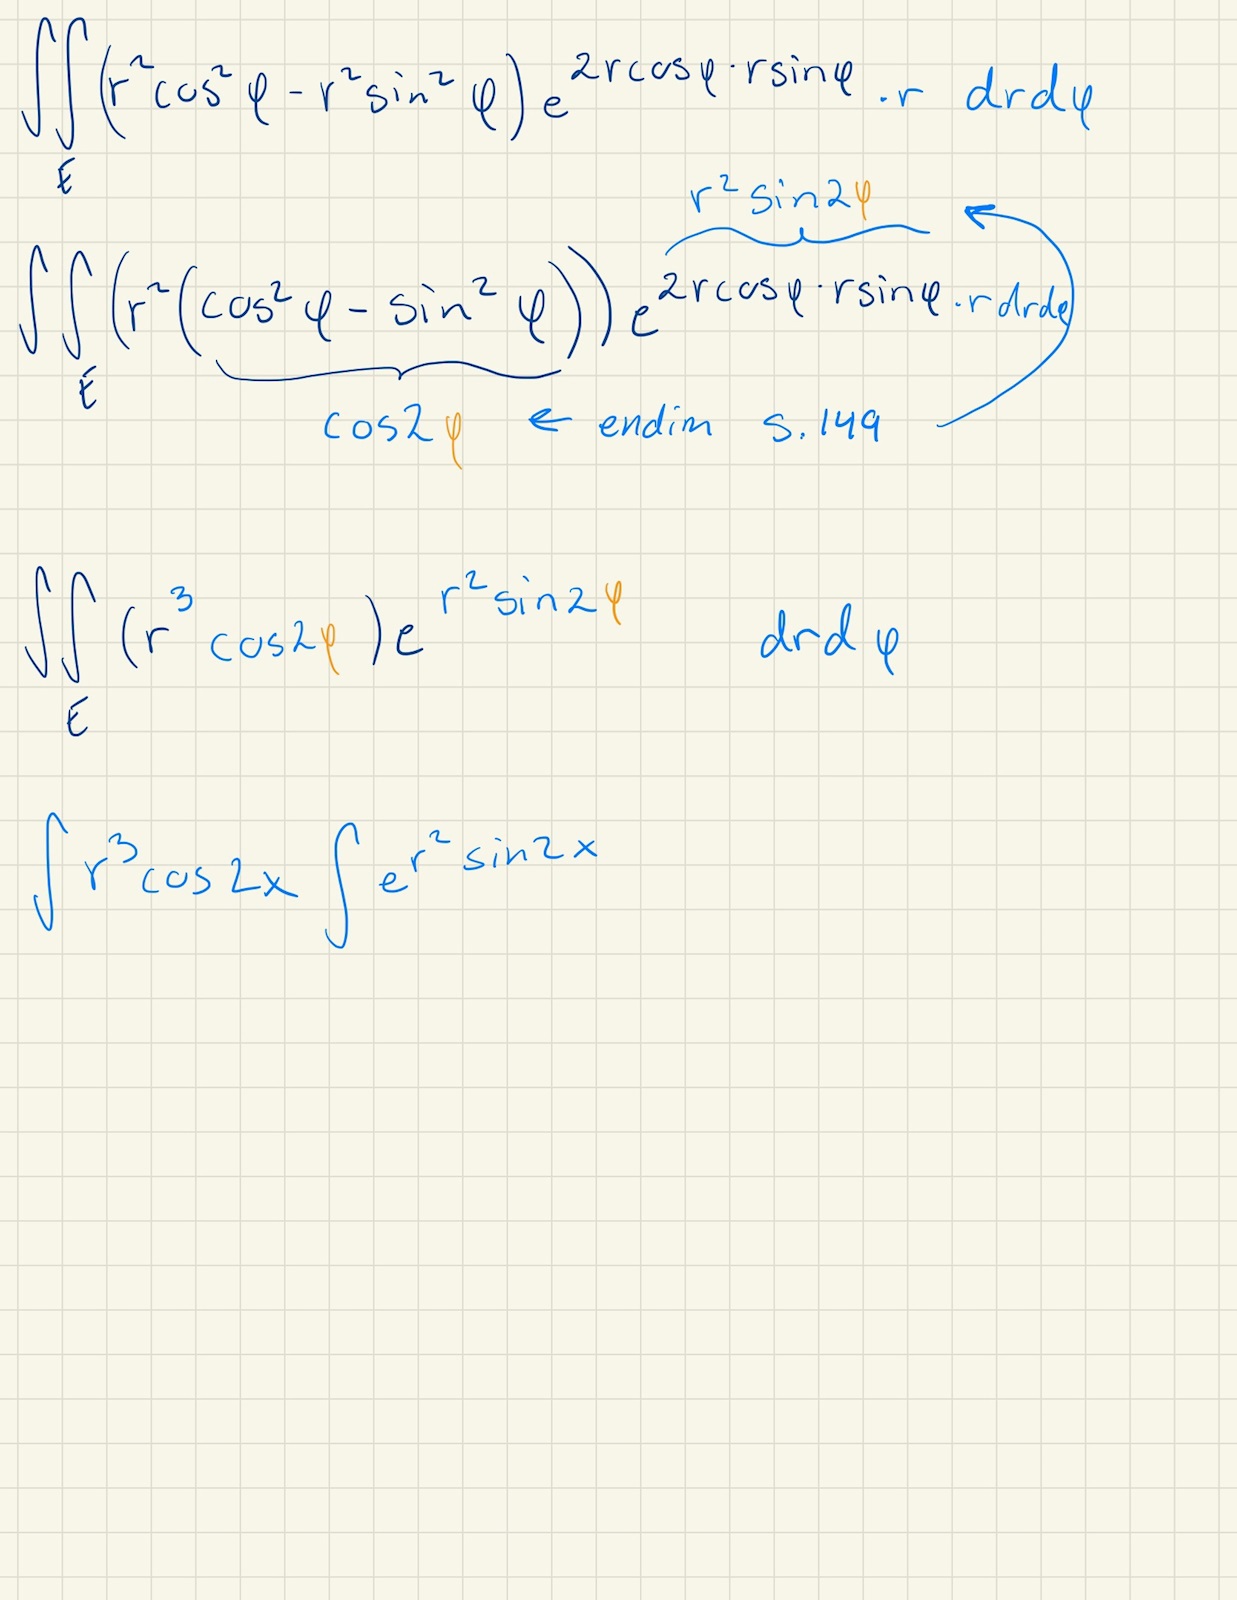 ∫∫ (r² cos² φ – r² sin² φ) e^{2rcosφ·rsinφ} · r drdφ
E
r² sin2φ
∫∫ (r² (cos² φ – sin² φ)) e^{2rcosφ·rsinφ} · r drdφ
E
cos2φ ← endim s. 149
∫∫ (r³ cos2φ) e^{r² sin2φ} drdφ
E
∫ r³ cos 2x ∫ e^{r² sin2x}